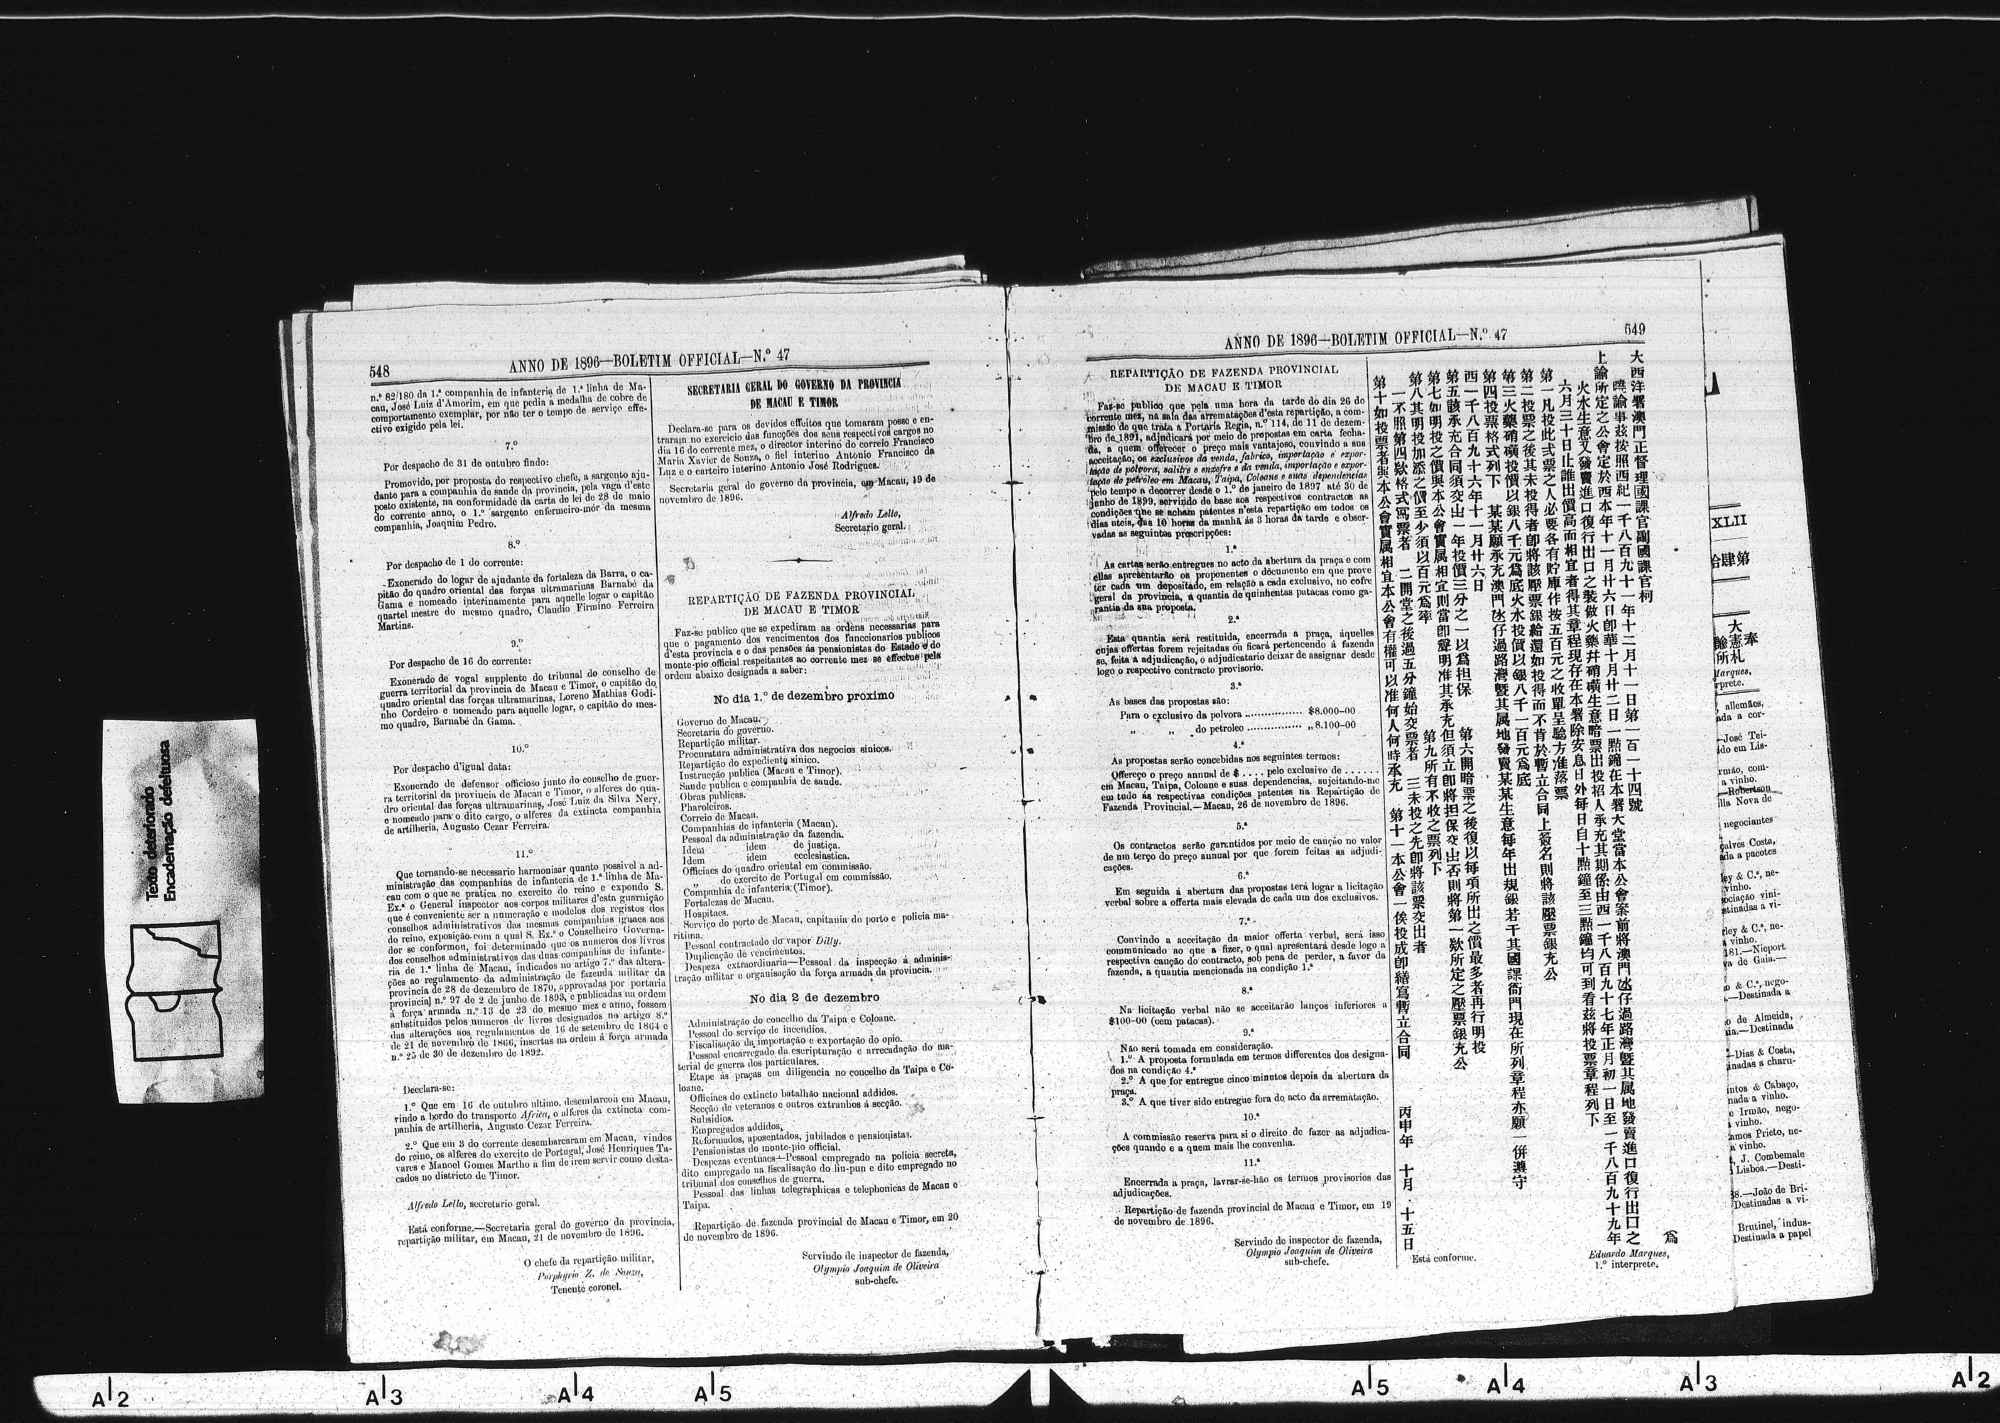 548
ANNO DE 1896—BOLETIM OFFICIAL—N.º 47
n.º 82/180 da 1.ª companhia de infanteria de 1.ª linha de Ma-
cau, José Luiz d'Amorim, em que pedia a medalha de cobre de
comportamento exemplar, por não ter o tempo de serviço effe-
ctivo exigido pela lei.
7.º
Por despacho de 31 de outubro findo:
Promovido, por proposta do respectivo chefe, a sargento aju-
dante para a companhia de saude da provincia, pela vaga d'este
posto existente, na conformidade da carta de lei de 28 de maio
do corrente anno, o 1.º sargento enfermeiro-mór da mesma
companhia, Joaquim Pedro.
8.º
Por despacho de 1 do corrente:
Exonerado do logar de ajudante da fortaleza da Barra, o ca-
pitão do quadro oriental das forças ultramarinas Barnabé da
Gama e nomeado interinamente para aquelle logar o capitão
quartel mestre do mesmo quadro, Claudio Firmino Ferreira
Martins.
9.º
Por despacho de 16 do corrente:
Exonerado de vogal supplente do tribunal do conselho de
guerra territorial da provincia de Macau e Timor, o capitão do
quadro oriental das forças ultramarinas, Loreno Mathias Godi-
nho Cordeiro e nomeado para aquelle logar, o capitão do mes-
mo quadro, Barnabé da Gama.
10.º
Por despacho d'igual data:
Exonerado de defensor officioso junto do conselho de guer-
ra territorial da provincia de Macau e Timor, o alferes do qua-
dro oriental das forças ultramarinas, José Luiz da Silva Nery,
e nomeado para o dito cargo, o alferes da extincta companhia
de artilheria, Augusto Cezar Ferreira.
11.º
Que tornando-se necessario harmonisar quanto possivel a ad-
ministração das companhias de infanteria de 1.ª linha de Ma-
cau com o que se pratica no exercito do reino e expondo S.
Ex.ª o General inspector aos corpos militares d'esta guarnição
que é conveniente ser a numeração e modelos dos registos dos
conselhos administrativos das mesmas companhias iguaes aos
do reino, exposição com a qual S. Ex.ª o Conselheiro Governa-
dor se conformou, foi determinado que os numeros dos livros
dos conselhos administrativos das duas companhias de infante-
ria de 1.ª linha de Macau, indicados no artigo 7.º das altera-
ções ao regulamento da administração de fazenda militar da
provincia de 28 de dezembro de 1870, approvadas por portaria
provincial n.º 97 de 2 de junho de 1893, e publicadas na ordem
á força armada n.º 13 de 23 do mesmo mez e anno, fossem
substituidos pelos numeros de livros designados no artigo 8.º
das alterações aos regulamentos de 16 de setembro de 1864 e
de 21 de novembro de 1866, insertas na ordem á força armada
n.º 25 de 30 de dezembro de 1892.
Deeclara-se:
1.º Que em 16 de outubro ultimo, desembarcou em Macau,
vindo a bordo do transporte Africa, o alferes da extincta com-
panhia de artilheria, Augusto Cezar Ferreira.
2.º Que em 3 do corrente desembarcaram em Macau, vindos
do reino, os alferes do exercito de Portugal, José Henriques Ta-
vares e Manoel Gomes Martho a fim de irem servir como desta-
cados no districto de Timor.
Alfredo Lello, secretario geral.
Está conforme.—Secretaria geral do govêrno da provincia,
repartição militar, em Macau, 21 de novembro de 1896.
O chefe da repartição militar,
Porphyrio Z. de Souza,
Tenente coronel.
SECRETARIA GERAL DO GOVERNO DA PROVINCIA
DE MACAU E TIMOR
Declara-se para os devidos effeitos que tomaram posse e en-
traram no exercicio das funcções dos seus respectivos cargos no
dia 16 do corrente mez, o director interino do correio Francisco
Maria Xavier de Souza, o fiel interino Antonio Francisco da
Luz e o carteiro interino Antonio José Rodrigues.
Secretaria geral do governo da provincia, em Macau, 19 de
novembro de 1896.
Alfredo Lello,
Secretario geral.
REPARTIÇÃO DE FAZENDA PROVINCIAL
DE MACAU E TIMOR
Faz-se publico que se expediram as ordens necessarias para
que o pagamento dos vencimentos dos funccionarios publicos
d'esta provincia e o das pensões ás pensionistas do Estado e do
monte-pio official respeitantes ao corrente mez se effectue pela
ordem abaixo designada a saber:
No dia 1.º de dezembro proximo
Governo de Macau.
Secretaria do governo.
Repartição militar.
Procuratura administrativa dos negocios sinicos.
Repartição do expediente sinico.
Instrucção publica (Macau e Timor).
Saude publica e companhia de saude.
Obras publicas.
Pharoleiros.
Correio de Macau.
Companhias de infanteria (Macau).
Pessoal da administração da fazenda.
Idem idem de justiça.
Idem idem ecclesiastica.
Officiaes do quadro oriental em commissão.
„ do exercito de Portugal em commissão.
Companhia de infanteria (Timor).
Fortalezas de Macau.
Hospitaes.
Serviço do porto de Macau, capitania do porto e policia ma-
ritima.
Pessoal contractado do vapor Dilly.
Duplicação de vencimentos.
Despeza extraordinaria—Pessoal da inspecção á adminis-
tração militar e organisação da força armada da provincia.
No dia 2 de dezembro
Administração do concelho da Taipa e Coloane.
Pessoal do serviço de incendios.
Fiscalisação da importação e exportação do opio.
Pessoal encarregado da escripturação e arrecadação do ma-
terial de guerra dos particulares.
Etape ás praças em diligencia no concelho da Taipa e Co-
loane.
Officiaes do extincto batalhão nacional addidos.
Secção de veteranos e outros extranhos á secção.
Subsidios.
Empregados addidos.
Reformados, aposentados, jubilados e pensionistas.
Pensionistas do monte-pio official.
Despezas eventuaes—Pessoal empregado na policia secreta,
dito empregado na fiscalisação do liu-pun e dito empregado no
tribunal dos conselhos de guerra.
Pessoal das linhas telegraphicas e telephonicas de Macau e
Taipa.
Repartição de fazenda provincial de Macau e Timor, em 20
de novembro de 1896.
Servindo de inspector de fazenda,
Olympio Joaquim de Oliveira
sub-chefe.
ANNO DE 1896—BOLETIM OFFICIAL—N.º 47
549
REPARTIÇÃO DE FAZENDA PROVINCIAL
DE MACAU E TIMOR
Faz-se publico que pela uma hora da tarde do dia 26 do
corrente mez, na sala das arrematações d'esta repartição, a com-
missão de que trata a Portaria Regia, n.º 114, de 11 de dezem-
bro de 1891, adjudicará por meio de propostas em carta fecha-
da, a quem offerecer o preço mais vantajoso, convindo a sua
acceitação, os exclusivos da venda, fabrico, importação e expor-
tação de polvora, salitre e enxofre e da venda, importação e expor-
tação de petroleo em Macau, Taipa, Coloane e suas dependencias
pelo tempo a decorrer desde o 1.º de janeiro de 1897 até 30 de
junho de 1899, servindo de base aos respectivos contractos as
condições que se acham patentes n'esta repartição em todos os
dias uteis, das 10 horas da manhã ás 3 horas da tarde e obser-
vadas as seguintes prescripções:
1.ª
As cartas serão entregues no acto da abertura da praça e com
ellas apresentarão os proponentes o documento em que prove
ter cada um depositado, em relação a cada exclusivo, no cofre
geral da provincia, a quantia de quinhentas patacas como ga-
rantia da sua proposta.
2.ª
Esta quantia será restituida, encerrada a praça, áquelles
cujas offertas forem rejeitadas ou ficará pertencendo á fazenda
se, feita a adjudicação, o adjudicatario deixar de assignar desde
logo o respectivo contracto provisorio.
3.ª
As bases das propostas são:
Para o exclusivo da polvora ................. $8.000-00
„ „ do petroleo ................ „ 8.100-00
4.ª
As propostas serão concebidas nos seguintes termos:
Offereço o preço annual de $ .... pelo exclusivo de .......
em Macau, Taipa, Coloane e suas dependencias, sujeitando-me
em tudo ás respectivas condições patentes na Repartição de
Fazenda Provincial.—Macau, 26 de novembro de 1896.
5.ª
Os contractos serão garantidos por meio de caução no valor
de um terço do preço annual por que forem feitas as adjudi-
cações.
6.ª
Em seguida á abertura das propostas terá logar a licitação
verbal sobre a offerta mais elevada de cada um dos exclusivos.
7.ª
Convindo a acceitação da maior offerta verbal, será isso
communicado ao que a fizer, o qual apresentará desde logo a
respectiva caução do contracto, sob pena de perder, a favor da
fazenda, a quantia mencionada na condição 1.ª
8.ª
Na licitação verbal não se acceitarão lanços inferiores a
$100-00 (cem patacas).
9.ª
Não será tomada em consideração.
1.º A proposta formulada em termos differentes dos designa-
dos na condição 4.ª
2.º A que for entregue cinco minutos depois da abertura da
praça.
3.º A que tiver sido entregue fora do acto da arrematação.
10.ª
A commissão reserva para si o direito de fazer as adjudica-
ções quando e a quem mais lhe convenha.
11.ª
Encerrada a praça, lavrar-se-hão os termos provisorios das
adjudicações.
Repartição de fazenda provincial de Macau e Timor, em 19
de novembro de 1896.
Servindo de inspector de fazenda,
Olympio Joaquim de Oliveira
sub-chefe.
大西洋署澳門正督理國課官副國課官柯 爲
曉諭事茲按照西紀一千八百九十一年十二月十一日第一百一十四號
上諭所定之公會定於西本年十一月廿六日卽華十月廿二日一點鐘在本署大堂當本公會案前將澳門氹仔過路灣曁其属地發賣進口復行出口之
火水生意又發賣進口復行出口之裝做火藥幷硝磺生意暗票出投招人承充其期係由西一千八百九十七年正月初一日至一千八百九十九年
六月三十日止誰出價高而相宜者得其章程現存在本署除安息日外每日自十點鐘至三點鐘均可到看茲將投票章程列下
第一凡投此式票之人必要各有貯庫作按五百元之收單呈驗方准落票
第二投票之後其未投得者卽將該壓票銀給還如投得而不肯於暫立合同上簽名則將該壓票銀充公
第三火藥硝磺投價以銀八千元爲底火水投價以銀八千一百元爲底
第四投票格式列下 某某願承充澳門氹仔過路灣曁其属地發賣某某生意每年出規銀若干其國課衙門現在所列章程亦願一併遵守
西一千八百九十六年十一月廿六日
第五該承充合同須交出一年投價三分之一以爲担保 第六開暗票之後復以每項所出之價最多者再行明投
第七如明投之價與本公會實属相宜則當卽聲明准其承充但須立卽將担保交出否則將第一欵所定之壓票銀充公
第八其明投加添之價至少須以百元爲率 第九所有不收之票列下
一不照第四欵格式寫票者 二開堂之後過五分鐘始交票者 三未投之先卽將該票交出者
第十如投票者虽本公會實属相宜本公會有權可以准何人何時承充 第十一本公會一俟投成卽繕寫暫立合同
丙申年 十月 十五日
Está conforme.
Eduardo Marques,
1.º interprete.
XLII
第肆拾
Texto deteriorado
Encadernação defeituosa
A 2
A 3
A 4
A 5
A 5
A 4
A 3
A 2